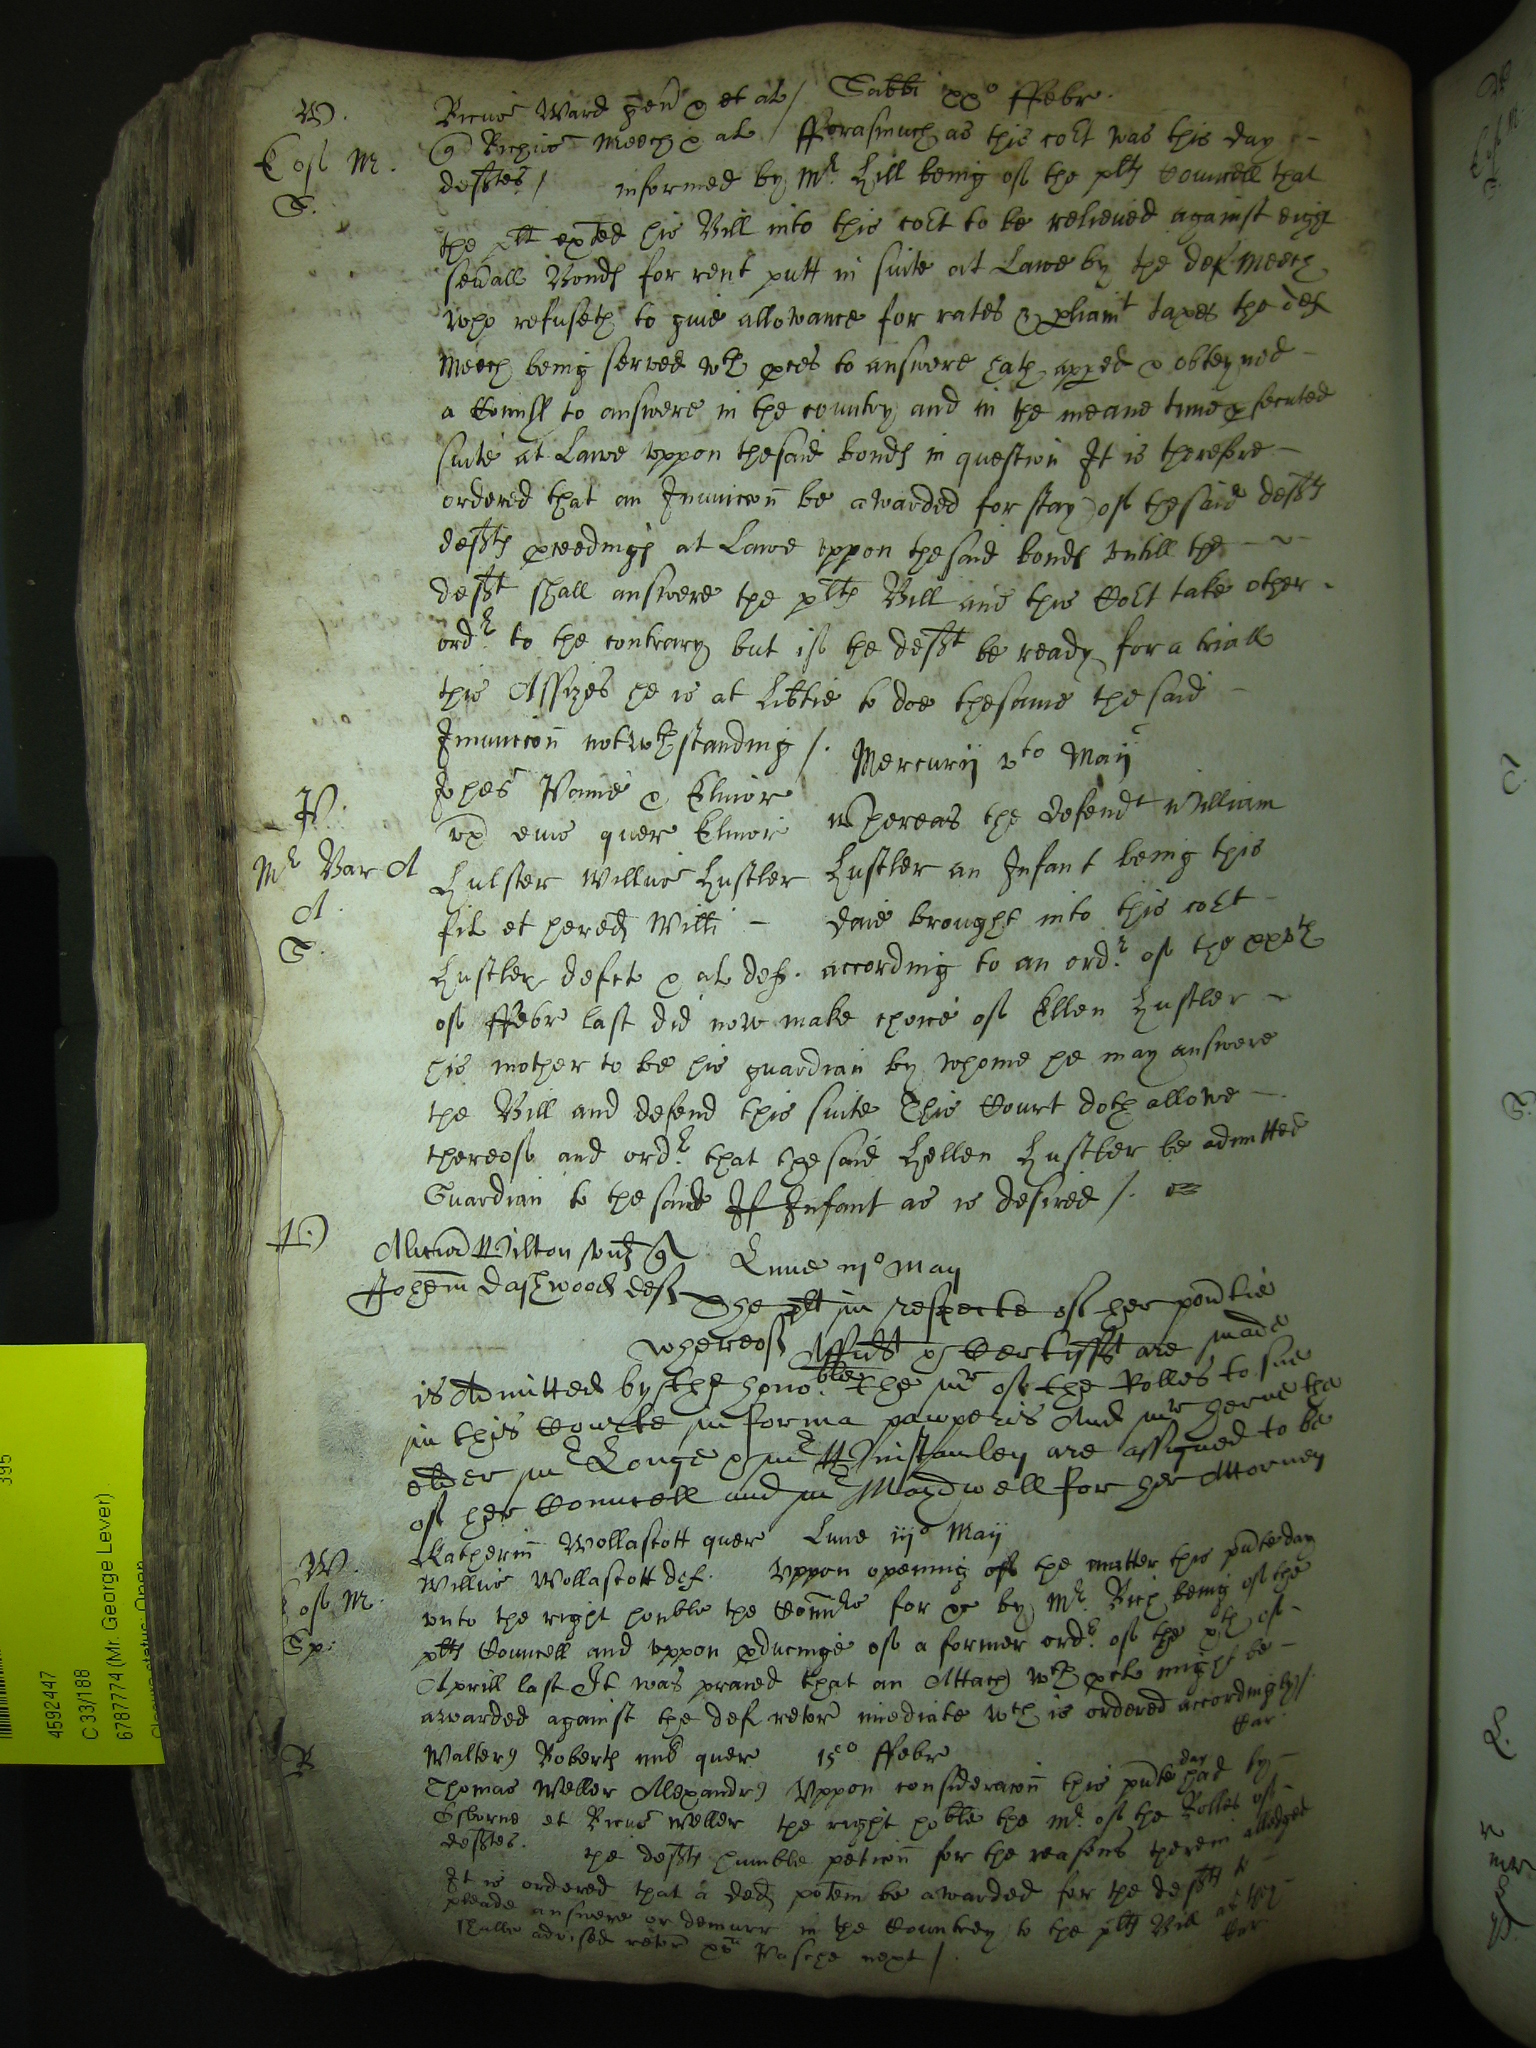 W. Ricus Ward gen & et al / Sabbi xxo ffebr.
Cos M. Richus Meech & al fforasmuch as this cort was this day
deftes / informed by Mr. Hill being of the plts Councell that
S.
the plt exted his Bill into this cort to be relieved against eight
seuall Bonds for rent putt in suite at Lawe by the def Meech
who refuseth to giue allowance for rates & pliamt taxes the def
Meech being served wth pces to answere hath apped & obteyned
a Comiss to answere in the country and in the meane time psecuted
suite at Lawe vppon thesaid bonds in question It is therefore
ordered that an Iniunccon be awarded for stay of thesaid defts
defts pceedings at Lawe vppon thesaid bonds vntill the
deft shall answere the plts Bill and this Cort take other
ordr. to the contrary but if the deft be ready for a triall
this Assizes he is at Libtie to doe thesame the said
Iniunccon notwthstanding /. Mercurij vto Maij
P. Johes Paine & Elinor
vx eius quer Elinor Whereas the defendt William
Mr Bar A Hulster Willus Hustler Hustler an Infant being this
A. fil et hered Willi daie brought into this cort
S.
Hustler defct & al def. according to an ordr. of the xxvth
of ffebr last did now make choice of Ellen Hustler
his mother to be his guardian by whome he may answere
the Bill and defend this suite This Court doth allowe
thereof and ordr. that the said Hellen Hustler be admitted
Guardian to the said If Infant as is desired /.
W Alicia Wilton vid
Johem Dashwood def Lune iijo May
The plt in respecte of her povtie
whereof Affidt & Certifft are made
is Admitted by the hono.ble the mr of the Rolles to sue
in this Courte in forma pauperis And mr herne the
elder mr Longe & mr Winstanley are assigned to be
of her Councell and mr Maydwell for her Attorney
W. Katherin Wollascott quer Lune iijo Maij
Willus Wollascott def. Vppon opening of the matter this pnte day
Cos M. vnto the right honble the Comrs for &c by Mr. Rich being of the
Sp: plts Councell and vppon pducinge of a former ordr. of the xth of
Aprill last It was praied that an Attach wth pcl might be
awarded against the def retor imediate wch is ordered accordingly /.
Car
R Walter Roberts mil quer 15o ffebr
Thomas Weller Alexander Vppon consideracon this pnte day had by
Osborne et Ricus Weller the right hoble the Mr. of the Rolles of
deftes. the defts humble peticon for the reasons therein alledged
It is ordered that a ded potem be awarded for the defts to
pleade answere or demurr in the Countrey to the plts Bill as they
shalbe advised retor Pasche next /.
Car
395
4592447
C 33/188
6787774 (Mr. George Lever)
Closure status: Open